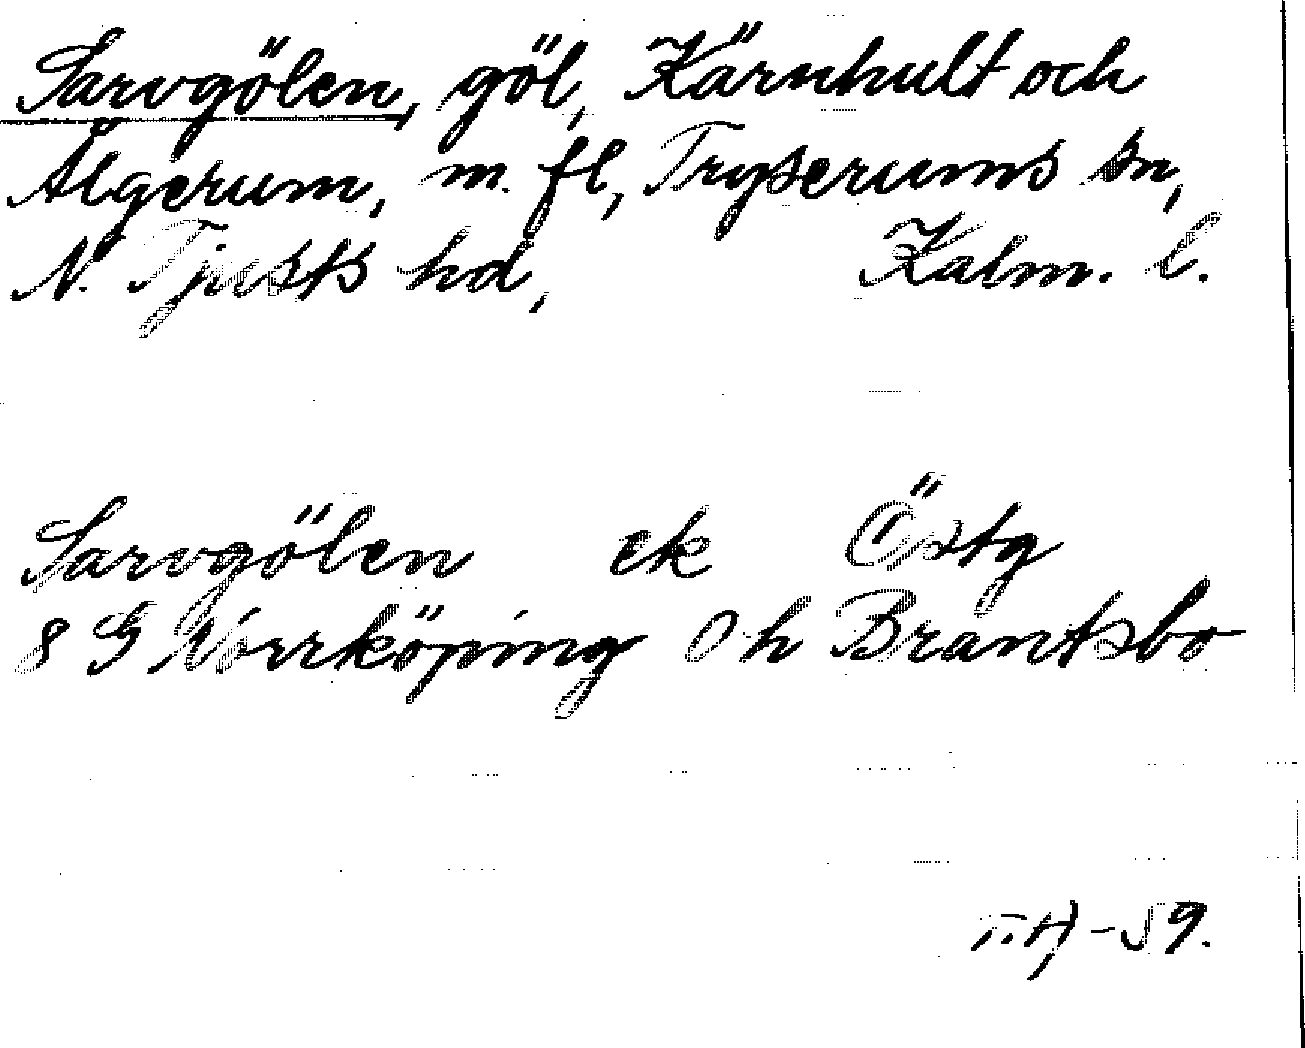 Sarvgölen, göl, Kärnhult och
Älgerum, m. fl, Tryserums sn,
N. Tjusts hd, Kalm. l.
Sarvgölen ek Östg
8 G Norrköping 0 h Brantsbo
-59.